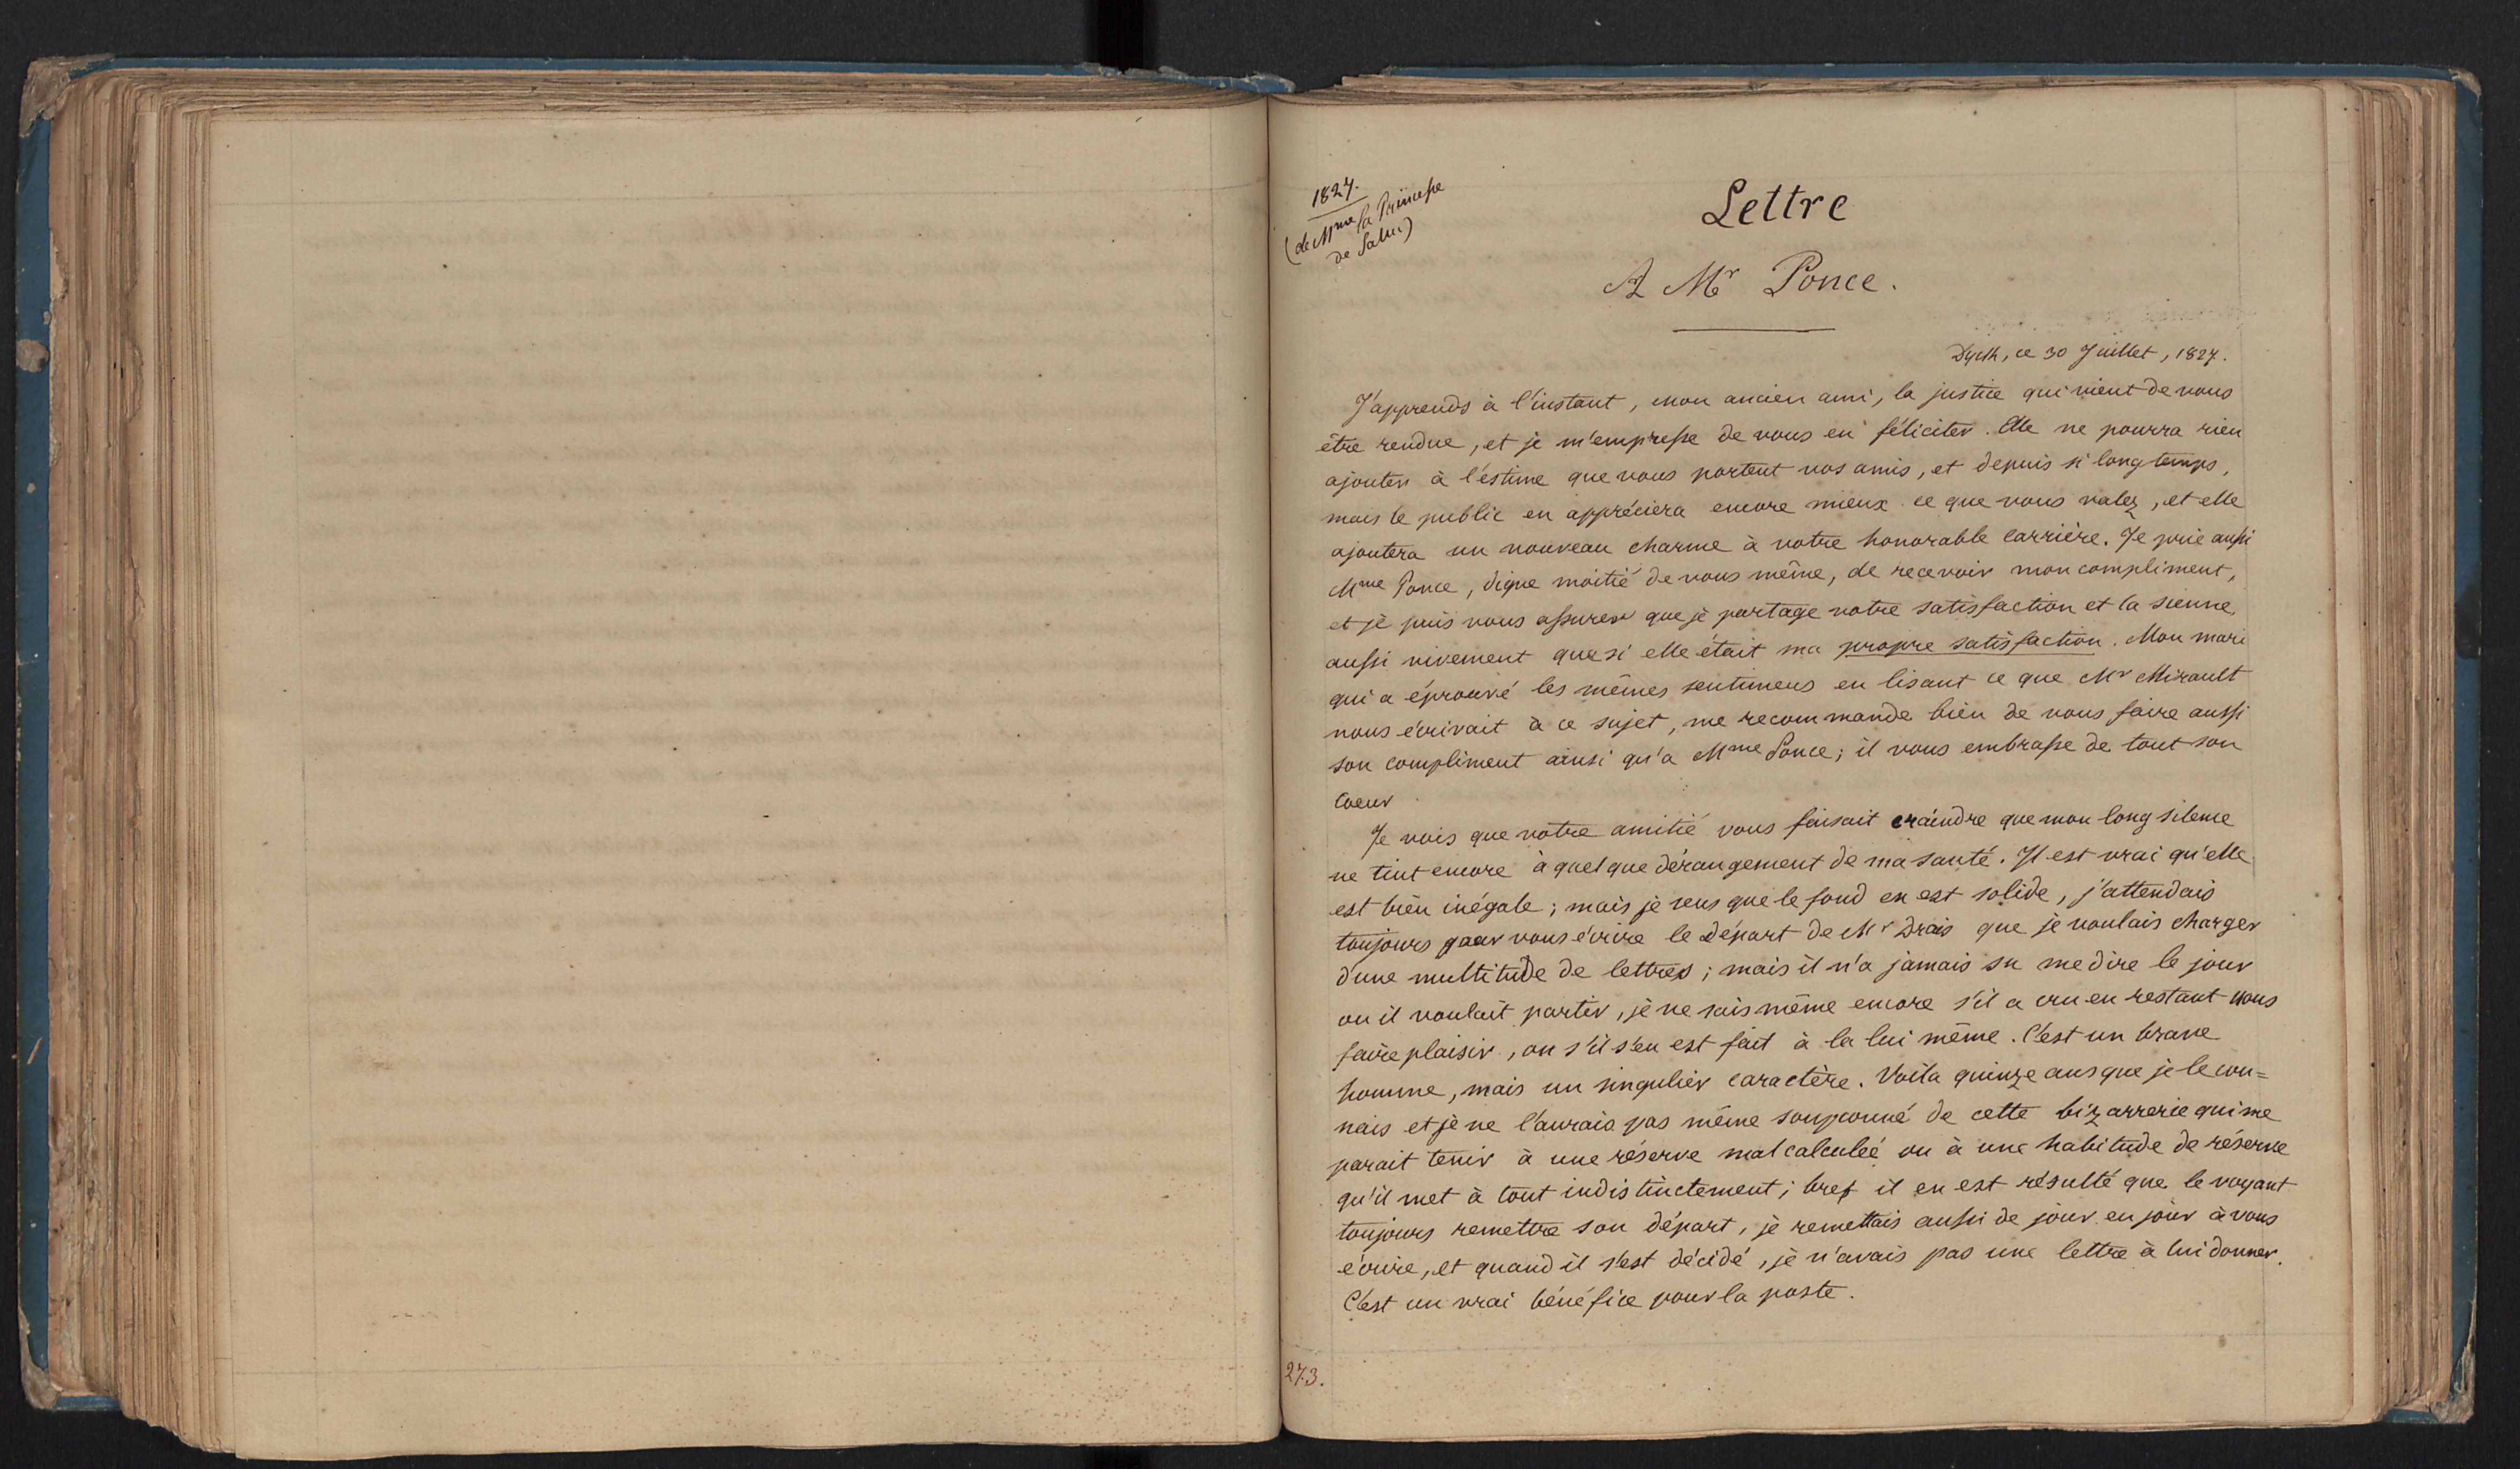 1827.
(de Mme la Princesse
de Salm)
Lettre
A Mr Ponce.
Dyck, ce 30 Juillet, 1827.
J'apprends à l'instant, mon ancien ami, la justice qui vient de vous
être rendue, et je m'empresse de vous en féliciter. Elle ne pourra rien
ajouter à l'estime que vous portent vos amis, et depuis si longtemps,
mais le public en appréciera encore mieux ce que vous valez, et elle
ajoutera un nouveau charme à votre honorable carrière. Je prie aussi
Mme Ponce, digne moitié de vous même, de recevoir mon compliment,
et je puis vous assurer que je partage votre satisfaction et la sienne,
aussi vivement que si elle était ma propre satisfaction. Mon mari
qui a éprouvé les mêmes sentimens en lisant ce que Mr Mirault
nous écrivait à ce sujet, me recommande bien de vous faire aussi
son compliment ainsi qu'a Mme Ponce; il vous embrasse de tout son
coeur
Je vois que votre amitié vous faisait craindre que mon long silence
ne tint encore à quelque dérangement de ma santé. Il est vrai qu'elle
est bien inégale; mais je sens que le fond en est solide, j'attendais
toujours pour vous écrire le départ de Mr Drais que je voulais charger
d'une multitude de lettres; mais il n'a jamais su me dire le jour
ou il voulait partir, je ne sais même encore s'il a cru en restant nous
faire plaisir, ou s'il s'en est fait à la lui même. C'est un brave
homme, mais un singulier caractère. Voila quinze ans que je le con=
nais et je ne l'aurais pas même soupconné de cette bizarrerie qui me
parait tenir à une réserve mal calculée ou à une habitude de réserve
qu'il met à tout indistinctement; bref il en est résulté que le voyant
toujours remettre son départ, je remettais aussi de jour en jour à vous
écrire, et quand il s'est décidé, je n'avais pas une lettre à lui donner.
C'est un vrai bénéfice pour la poste.
273.